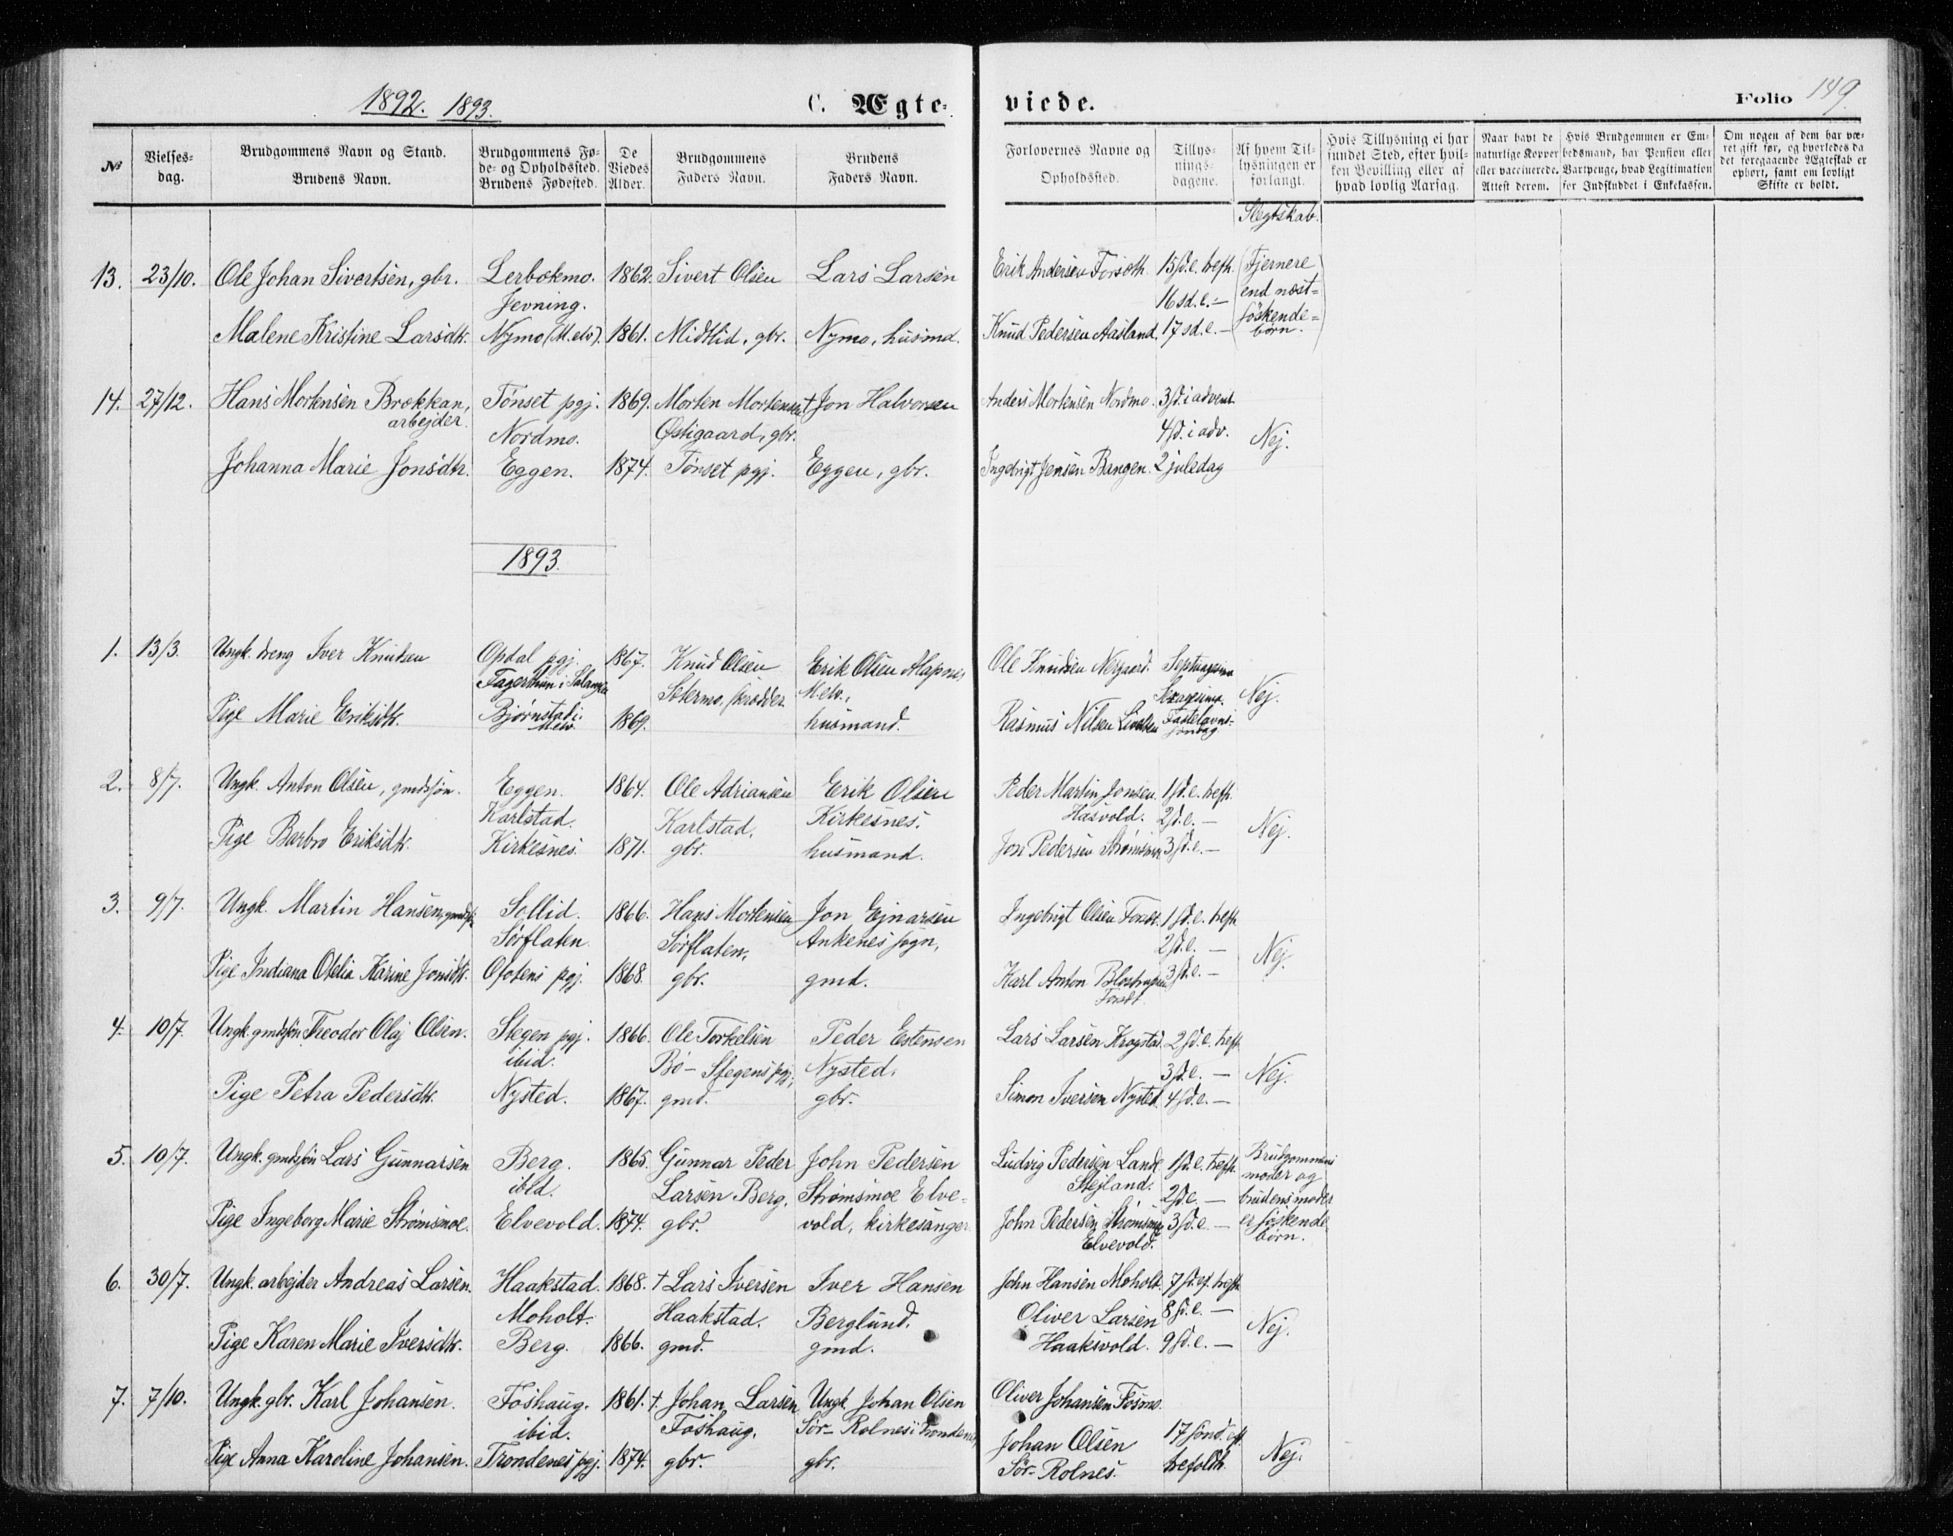 1892. 1893.
C. Ægte-
viede.
Folio 149.
№
Vielses-
dag.
Brudgommens Navn og Stand.
Brudens Navn.
Brudgommens Fø-
de- og Opholdssted.
Brudens Fødested.
De
Viedes
Alder.
Brudgommens
Faders Navn.
Brudens
Faders Navn.
Forlovernes Navne og
Opholdssted.
Tillys-
nings-
dagene.
Af hvem Til-
lysningen er
forlangt.
Hvis Tillysning ei har
fundet Sted, efter hvil-
ken Bevilling eller af
hvad lovlig Aarsag.
Naar havt de
naturlige Kopper
eller vaccinerede.
Attest derom.
Hvis Brudgommen er Em-
bedsmand, har Pension eller
Vartpenge, hvad Legitimation
for Indskuddet i Enkekassen.
Om nogen af dem har væ-
ret gift før, og hvorledes da
det foregaaende Ægteskab er
ophørt, samt om lovligt
Skifte er holdt.
Slegtskab.
13. 23/10. Ole Johan Sivertsen, gbr. Lerbekmo. 1862. Sivert Olsen Lars Larsen Erik Andersen Forseth. 15 sd. e. trefh. Fjernere
Jevning. 16 sd. e. — end næst=
Malene Kristine Larsdtr. Nymo (M.elv). 1861. Midtlid, gbr. Nymo, husmd. Knud Pedersen Aasland. 17 sd. e. — søskende=
børn.
14. 27/12. Hans Mortensen Brækkan, Tønset pgj. 1869. Morten Mortensen † Jon Halvorsen Anders Mortensen Nordmo. 3 sd. i advent
arbejder. Nordmo. Østigaard, gbr. 4 sd. i adv. Nej.
Johanna Marie Jonsdtr. Eggen. 1874. Tønset pgj. Eggen, gbr. Ingebrigt Jensen Bangen. 2 juledag
1893.
1. 13/3. Ungk. dreng Iver Knutsen Opdal pgj. 1867. Knud Olsen Erik Olsen Alapnes Ole Knudsen Nergaard. Septuagesima
Fagerthun i Salangen Setermo, skrædder Melv., Sexagesima. Nej.
Pige Marie Eriksdtr. Bjørnstad i Melv. 1869. husmand. Rasmus Nilsen Fastelavns-
søndag
2. 8/7. Ungk. Anton Olsen, gmdsøn. Eggen. 1864. Ole Adriansen Erik Olsen Peder Martin Jonsen. 1 sd. e. trefh.
Karlstad. Karlstad, Kirkesnes. Hasvold. 2 sd. e. — Nej.
Pige Barbro Eriksdtr. Kirkesnes. 1871. gbr. husmand. Jon Pedersen Strømsmoe 3 sd. e. —
3. 9/7. Ungk. Martin Hansen, gmdsøn Sollid. 1866. Hans Mortensen Jon Ejnarsen Ingebrigt Olsen 1 sd. e. trefh.
Sørflaten. Sørflaten, Ankenes sogn, 2 sd. e. — Nej.
Pige Indiana Otelia Karine Jonsdtr. Ofotens pgj. 1868. gbr. gmd. Karl Anton 3 sd. e. —
4. 10/7. Ungk. gmdsøn Theodor Olaj Olsen. Stegen pgj. 1866. Ole Torkelsen Peder Estensen Lars Larsen Krogstad 2 sd. e. trefh.
ibid. Bø — Stegens pgj., Nysted, 3 sd. e. — Nej.
Pige Petra Pedersdtr. Nysted. 1867. gmd. gbr. Simon Iversen Nysted. 4 sd. e. —
5. 10/7. Ungk. gmdsøn Lars Gunnarsen Berg. 1865. Gunnar Peder John Pedersen Ludvig Pedersen Lande 1 sd. e. trefh. Brudgommens
ibid. Larsen Berg, Strømsmoe Elve- Stejland. 2 sd. e. — moder og
Pige Ingeborg Marie Strømsmoe. Elvevold. 1874. gbr. vold, kirkesanger John Pedersen Strømsmoe 3 sd. e. — brudens moder
Elvevold. er søskende
børn.
6. 30/7. Ungk. arbejder Andreas Larsen. Haakstad. 1868. † Lars Iversen Iver Hansen John Hansen Moholt. 7 sd. ef. trefh.
Moholt. Haakstad. Berglund. Oliver Larsen 8 sd. e. — Nej.
Pige Karen Marie Iversdtr. Berg. 1866. gmd. gmd. Haaksvold. 9 sd. e. —
7. 7/10. Ungk. gbr. Karl Johansen. Foshaug. 1861. † Johan Larsen Ungk. Johan Olsen Oliver Johansen Fosmo.
ibid. Foshaug. Sør-Rolnes i Trondenes, Johan Olsen 17 sønd. ef. Nej.
Pige Anna Karoline Johansen. Trondenes pgj. 1874. gbr. gbr. Sør-Rolnes. trefoldh.